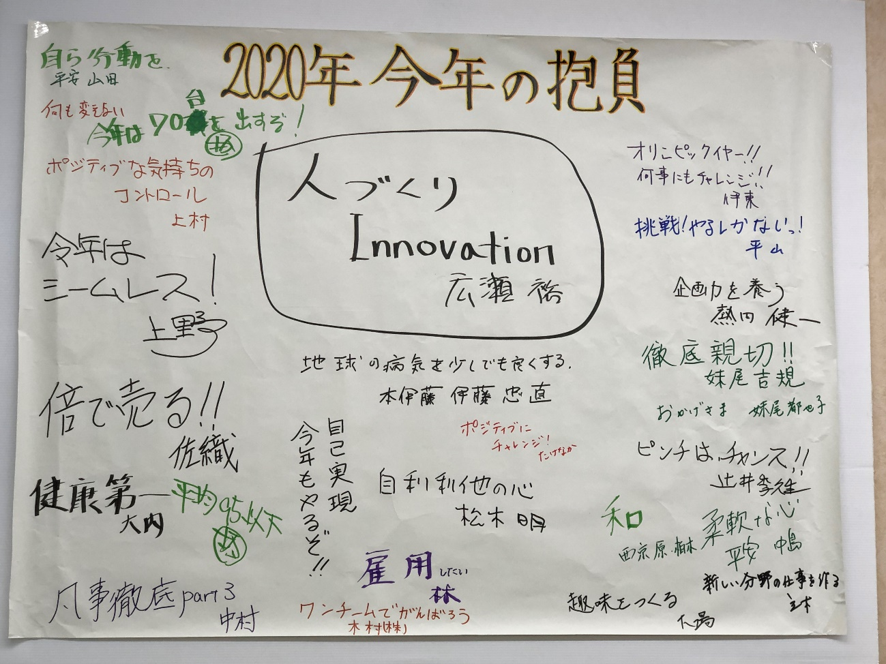 2020年 今年の抱負
自ら行動を
平安 山田
何も変えない
今年は70台を出すぞ!
ポジティブな気持ちの
コントロール
上村
今年は
シームレス!
上野
倍で売る!!
佐織
健康第一
大内
平均95以下
凡事徹底part3
中村
人づくり
Innovation
広瀬 裕
地球の病気を少しでも良くする.
本伊藤 伊藤忠直
ポジティブに
チャレンジ!
たけなか
自己実現
今年もやるぞ!!
自利利他の心
松木 明
雇用したい
林
ワンチームでがんばろう
木村(株)
オリンピックイヤー!!
何事にもチャレンジ!!
伊東
挑戦!やるしかないっ!
平山
企画力を養う
熱田 健一
徹底親切!!
妹尾吉規
おかげさま 妹尾都也子
ピンチは、チャンス!!
辻井
和
西京原
柔軟な心
平安 中島
新しい分野の仕事を作る
趣味をつくる